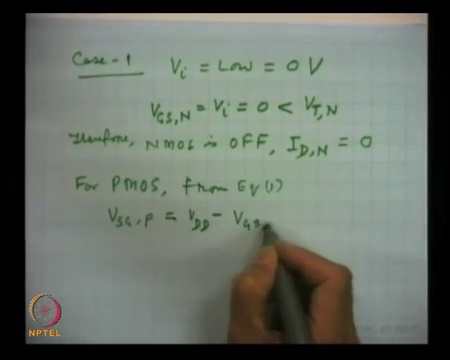 Case-1 Vi = Low = 0 V
VGS,N = Vi = 0 < VT,N
Therefore, NMOS is OFF, ID,N = 0
For PMOS, from Eq(1)
VSG,P = VDD - VGS,
NPTEL